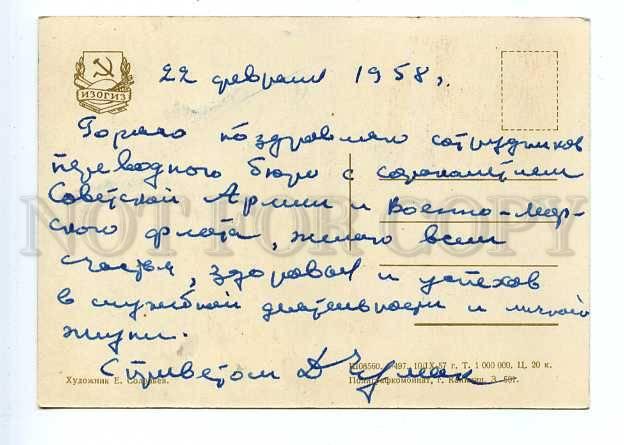 ИЗОГИЗ
22 февраля 1958 г.
Горячо поздравляю сотрудников
переводного бюро с сорокалетием
Советской Армии и Военно-Мор-
ского флота, желаю всем
счастья, здоровья и успехов
в служебной деятельности и личной
жизни.
С приветом
NOT FOR COPY
Художник Е. Соловьев.
10/IX-57 г. Т. 1 000 000. Ц. 20 к.